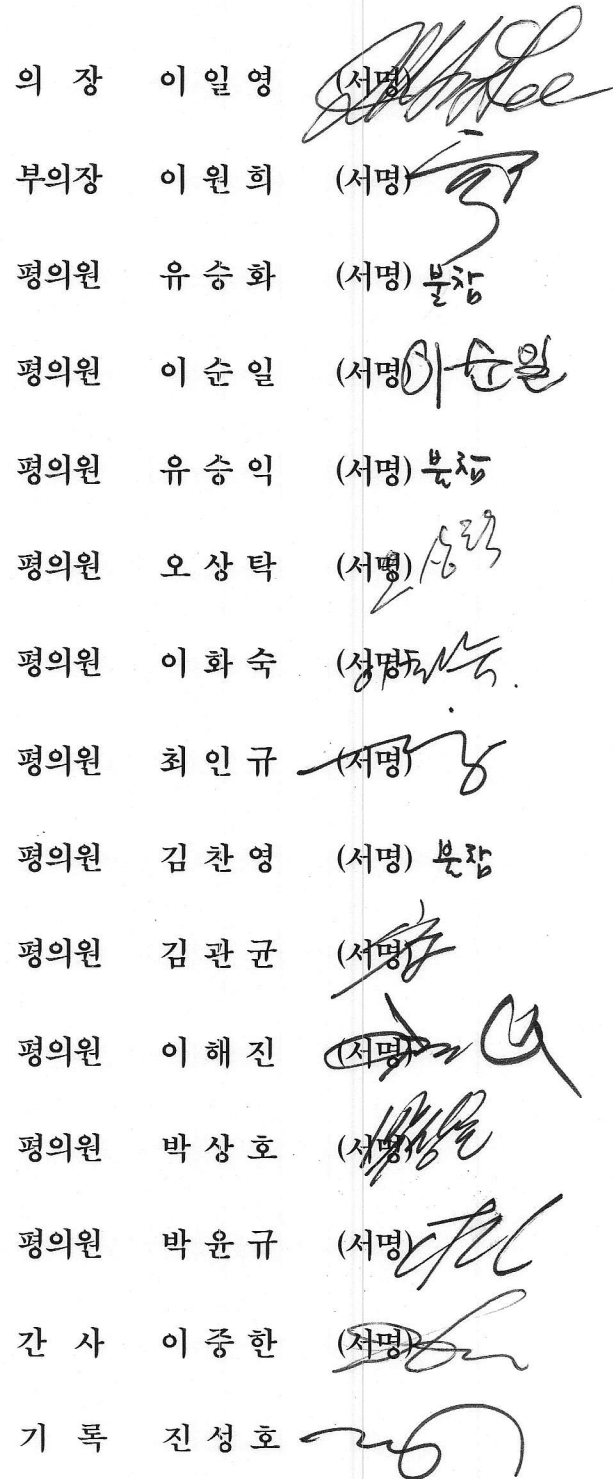 의 장 이 일 영 (서명)
부의장 이 원 희 (서명)
평의원 유 승 화 (서명) 불참
평의원 이 순 일 (서명) 이순일
평의원 유 승 익 (서명) 불참
평의원 오 상 탁 (서명) 오상탁
평의원 이 화 숙 (서명)
평의원 최 인 규 (서명)
평의원 김 찬 영 (서명) 불참
평의원 김 관 균 (서명)
평의원 이 해 진 (서명)
평의원 박 상 호 (서명)
평의원 박 윤 규 (서명)
간 사 이 중 한 (서명)
기 록 진 성 호